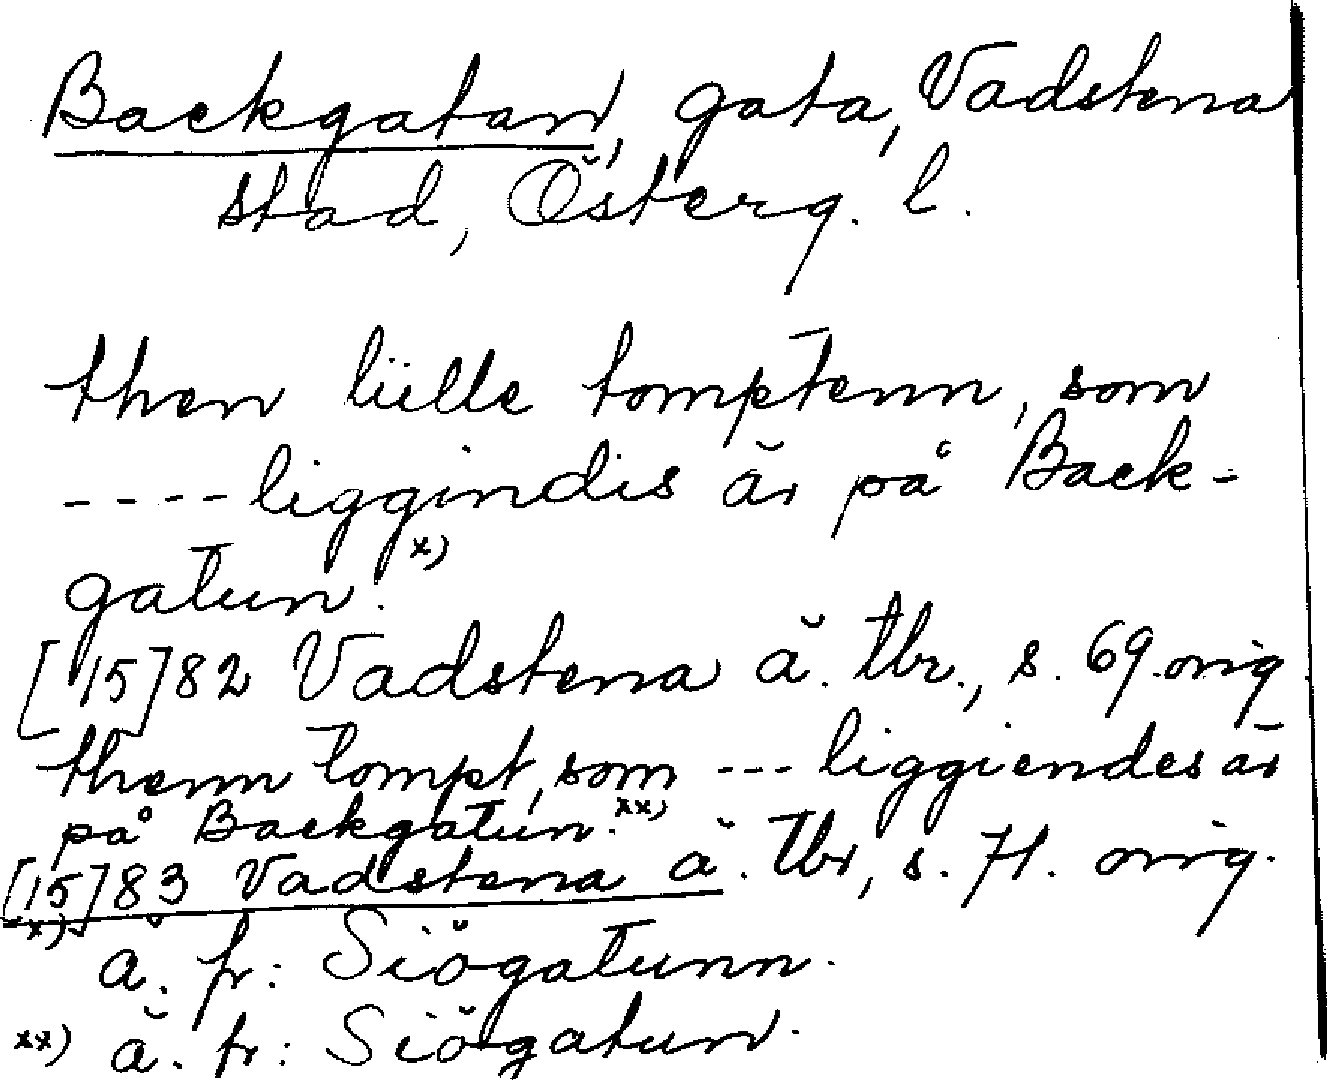 Backgatan, gata, Vadstena
stad, Österg. l.
then liille tomptenn, som
---- liggindis är på Back-
gatun. x)
[15]82 Vadstena ä. tbr., s. 69 orig
thenn tompt, som --- liggiendes är
på Backgatun. xx)
[15]83 Vadstena ä. tbr, s. 71. orig.
x) ä. fr: Siögatunn.
xx) ä. fr: Siögatun.